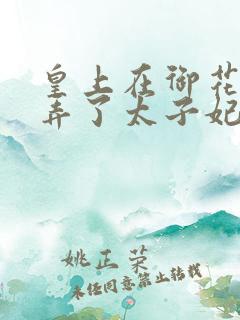 皇上在御花
弄了太子妃
姚正荣
未经同意禁止转载